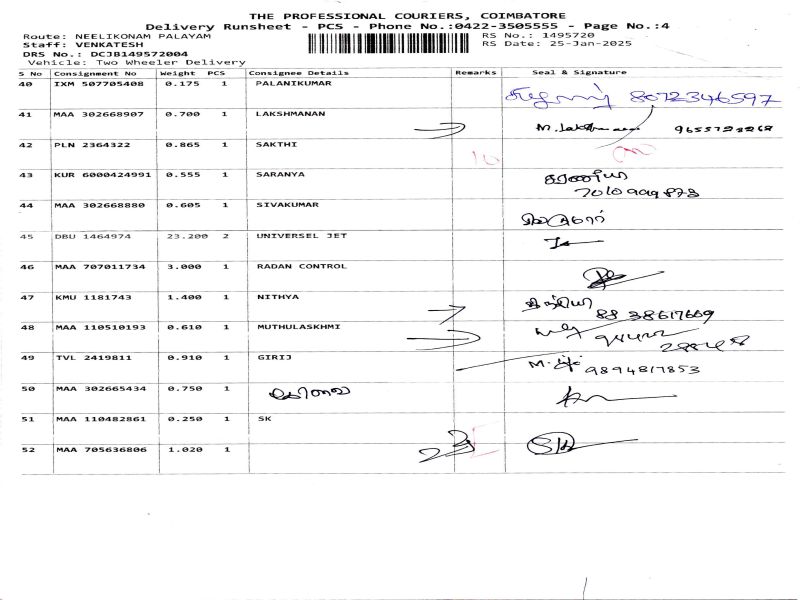 THE PROFESSIONAL COURIERS, COIMBATORE
Delivery Runsheet - PCS - Phone No.:0422-3505555 - Page No.:4
Route: NEELIKONAM PALAYAM
RS No.: 1495720
Staff: VENKATESH
RS Date: 25-Jan-2025
DRS No.: DCJB149572004
Vehicle: Two Wheeler Delivery
S No Consignment No Weight PCS Consignee Details Remarks Seal & Signature
40 IXM 507705408 0.175 1 PALANIKUMAR 8072346597
41 MAA 302668907 0.700 1 LAKSHMANAN
42 PLN 2364322 0.865 1 SAKTHI
43 KUR 6000424991 0.555 1 SARANYA சரண்யா
7010999873
44 MAA 302668880 0.605 1 SIVAKUMAR
45 DBU 1464974 23.200 2 UNIVERSEL JET
46 MAA 707011734 3.000 1 RADAN CONTROL
47 KMU 1181743 1.400 1 NITHYA நித்யா
88 38617669
48 MAA 110510193 0.610 1 MUTHULASKHMI
49 TVL 2419811 0.910 1 GIRIJ 9894817853
50 MAA 302665434 0.750 1
51 MAA 110482861 0.250 1 SK
52 MAA 705636806 1.020 1